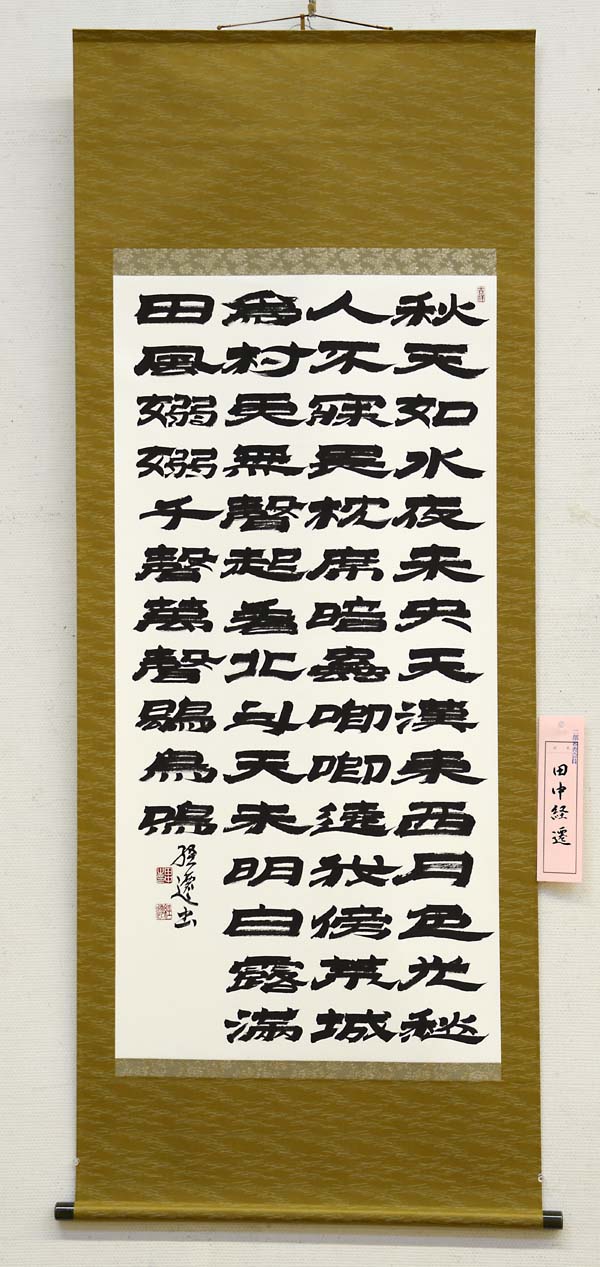 秋天如水夜未央天漢東西月色光愁
人不寐畏枕席暗蟲唧唧遶我傍荒城
為村更無聲起看北斗天未明白露滿
田風嫋嫋千聲萬聲鶡鳥鳴
經遷書
田中経遷